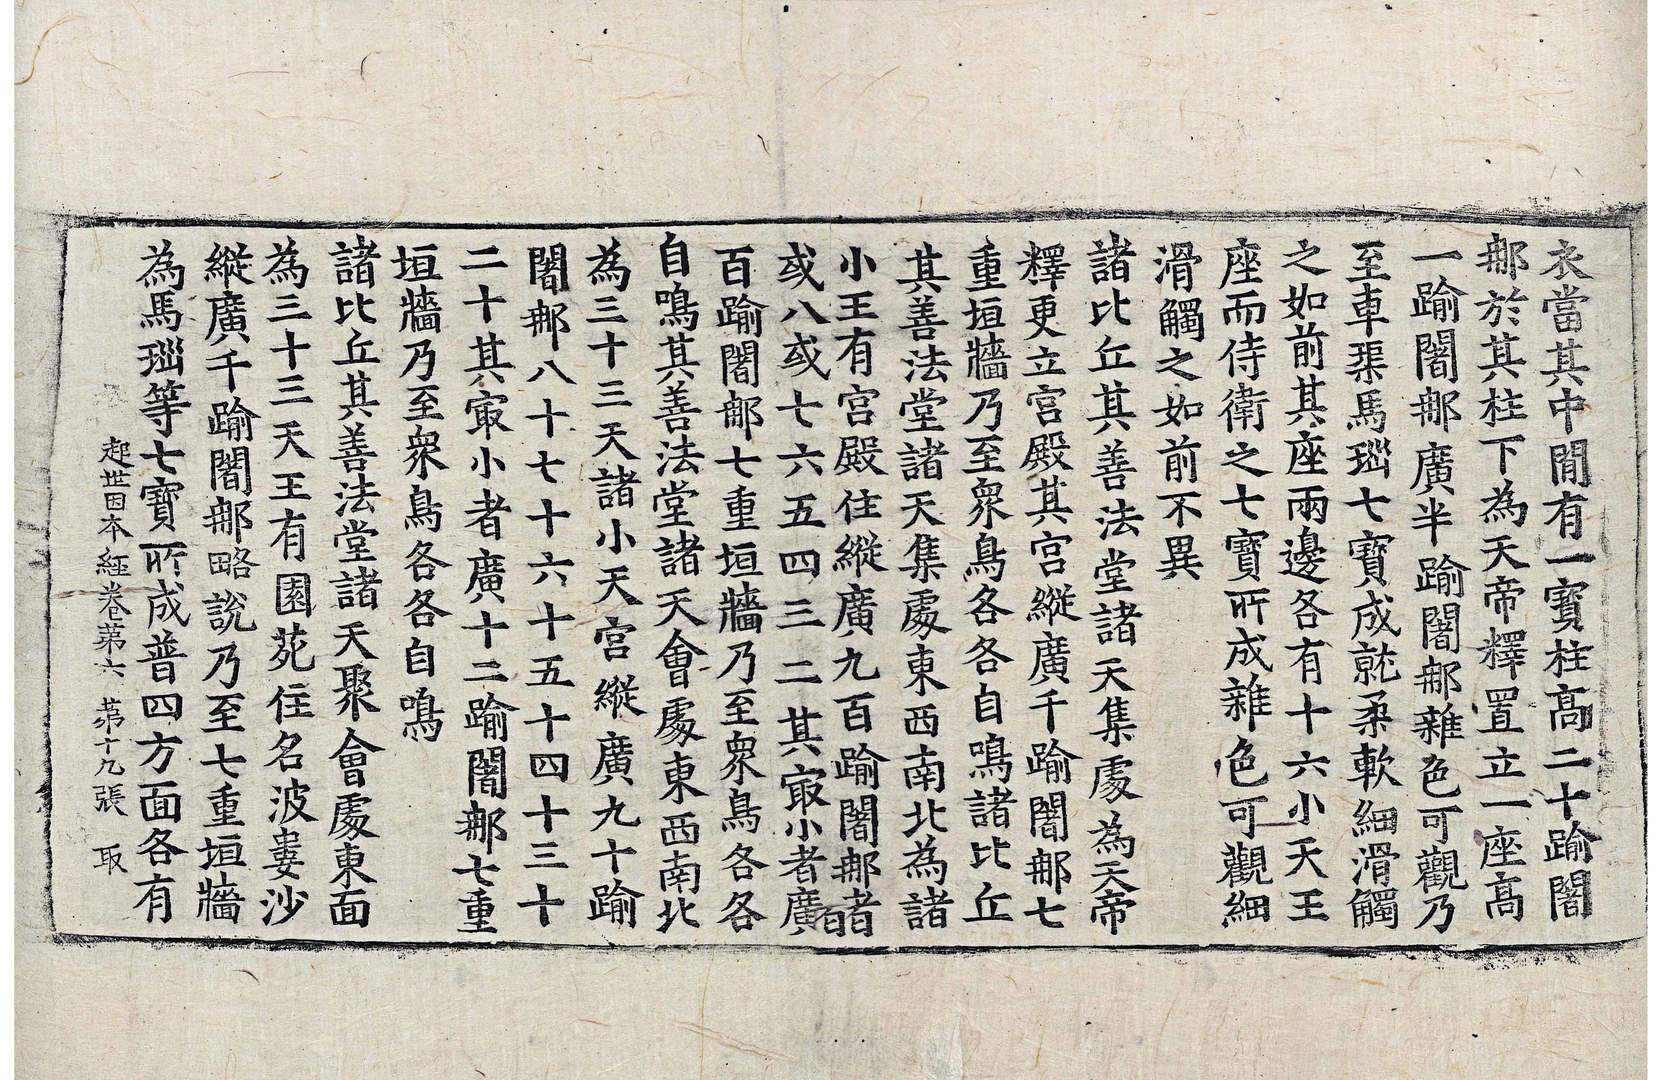 衣當其中閒有一寳柱髙二十踰闍
𨚗於其柱下為天帝釋置立一座髙
一踰闍𨚗廣半踰闍𨚗雜色可觀乃
至車䂖馬瑙七寳成就柔軟細滑觸
之如前其座兩邊各有十六小天王
座而侍衛之七寳所成雜色可觀細
滑觸之如前不異
諸比丘其善法堂諸天集處為天帝
釋更立宮殿其宮縱廣千踰闍𨚗七
重垣牆乃至衆鳥各各自鳴諸比丘
其善法堂諸天集處東西南北為諸
小王有宮殿住縱廣九百踰闍𨚗者
或八或七六五四三二其㝡小者廣百
百踰闍𨚗七重垣牆乃至衆鳥各各
自鳴其善法堂諸天會處東西南北
為三十三天諸小天宮縱廣九十踰
闍𨚗八十七十六十五十四十三十
二十其㝡小者廣十二踰闍𨚗七重
垣牆乃至衆鳥各各自鳴
諸比丘其善法堂諸天聚會處東面
為三十三天王有園苑住名波婁沙
縱廣千踰闍𨚗略說乃至七重垣牆
為馬瑙等七寳所成普四方面各有
起世因本經卷第六　第十九張　取